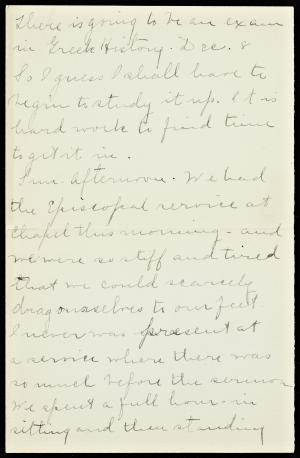 There is going to be an exam
in Greek History. Dec. 8
So I guess I shall have to
begin to study it up. It is
hard work to find time
to get it in.
Sun. Afternoon. We had
the Episcopal service at
chapel this morning - and
we were so stiff and tired
that we could scarcely
drag ourselves to our feet.
I never was present at
a service where there was
so much before the sermon
We spent a full hour - in
sitting and then standing